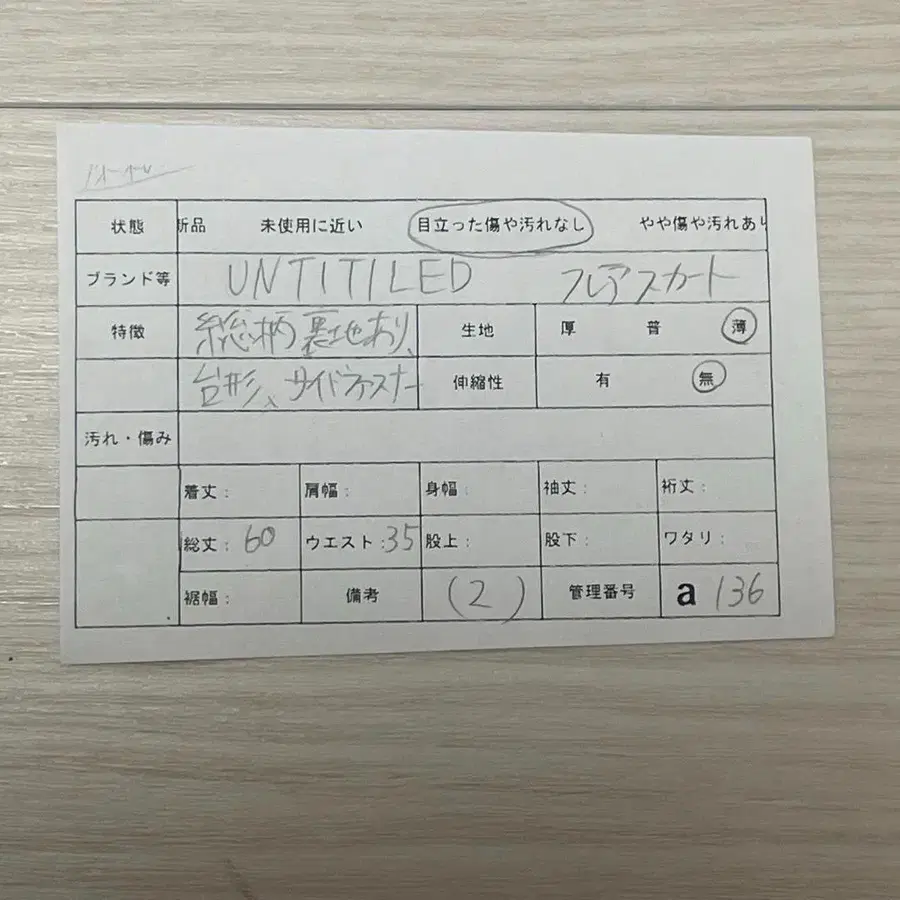 状態 新品 未使用に近い 目立った傷や汚れなし やや傷や汚れあり
ブランド等 UNTITILED フレアスカート
特徴 総柄 裏地あり、 生地 厚 普 薄
台形、サイドファスナー 伸縮性 有 無
汚れ・傷み
着丈: 肩幅: 身幅: 袖丈: 裄丈:
総丈: 60 ウエスト:35 股上: 股下: ワタリ:
裾幅: 備考 (2) 管理番号 a 136